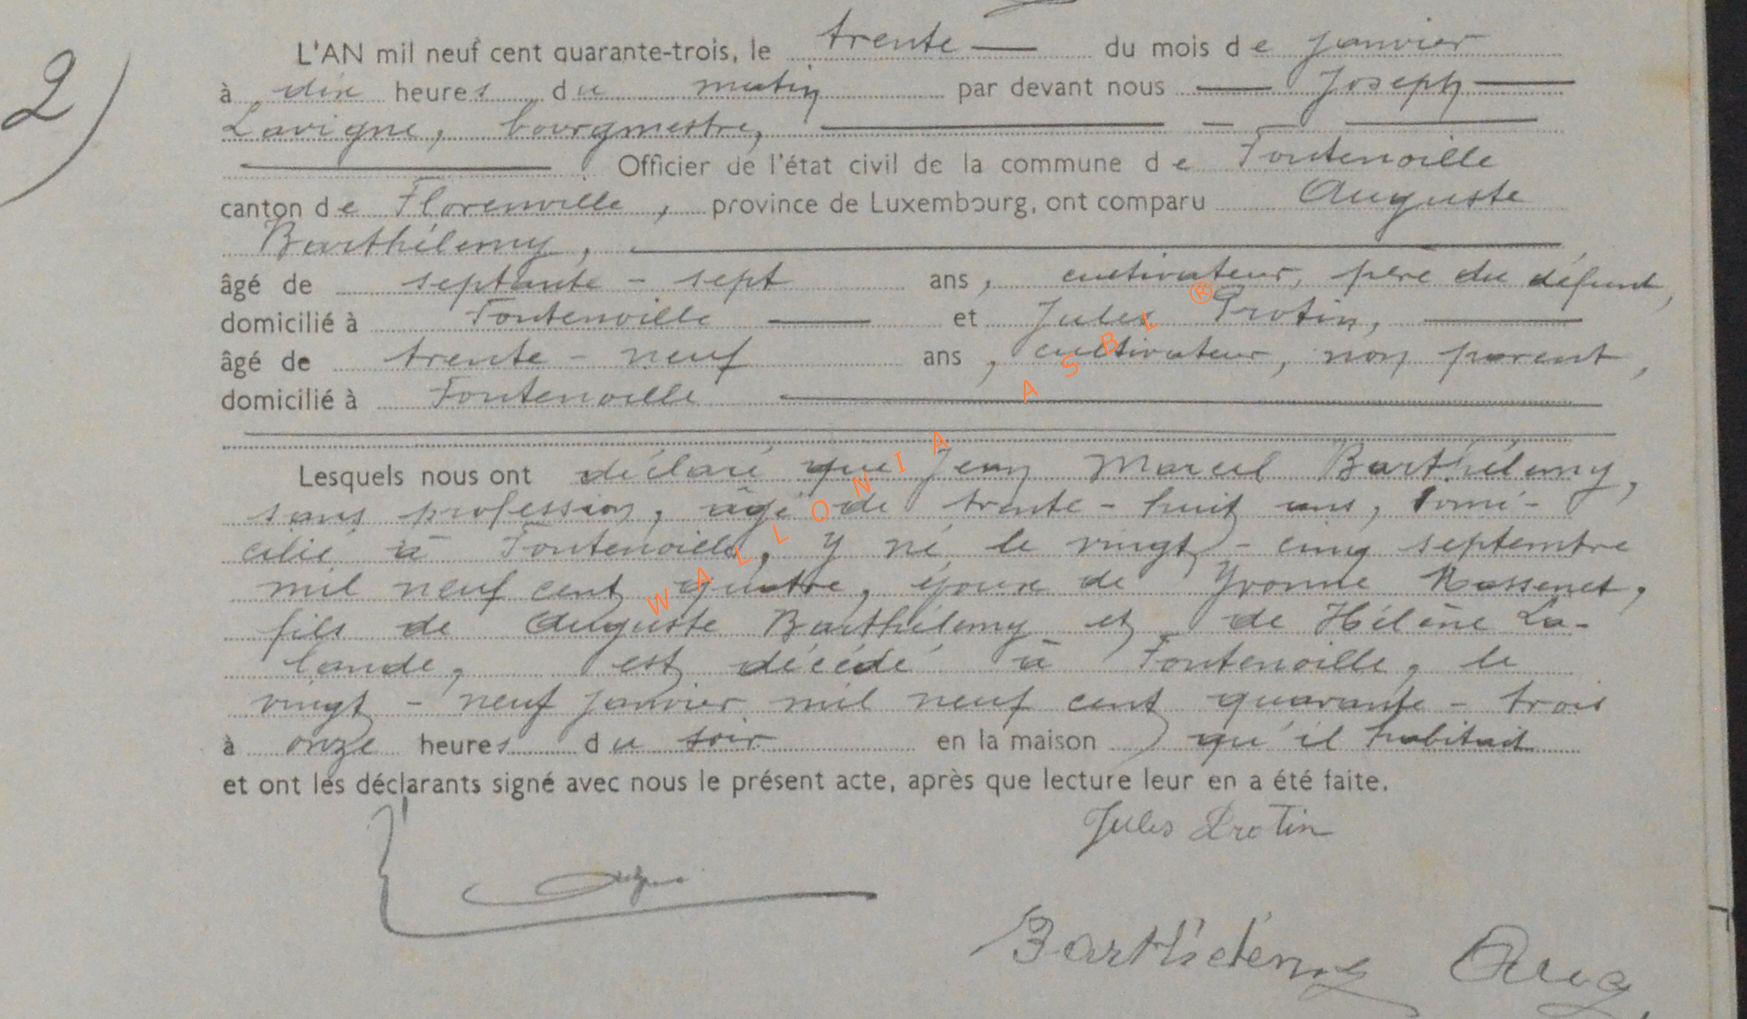 2)
L'AN mil neuf cent quarante-trois, le trente du mois de janvier
à dix heures du matin par devant nous Joseph
Lavigne, bourgmestre,
Officier de l'état civil de la commune de Fontenoille
canton de Florenville, province de Luxembourg, ont comparu Auguste
Barthélemy,
âgé de septante-sept ans, cultivateur, père du défunt,
domicilié à Fontenoille et Jules Protin,
âgé de trente-neuf ans, cultivateur, non parent,
domicilié à Fontenoille
Lesquels nous ont déclaré que Jean Marcel Barthélemy,
sans profession, âgé de trente-huit ans, domi-
cilié à Fontenoille, y né le vingt-cinq septembre
mil neuf cent quatre, époux de Yvonne Rossenet,
fils de Auguste Barthélemy et de Hélène La-
lande, est décédé à Fontenoille, le
vingt-neuf janvier mil neuf cent quarante-trois
à onze heures du soir en la maison qu'il habitait
et ont les déclarants signé avec nous le présent acte, après que lecture leur en a été faite.
Jules Protin
Barthélemy Aug
WALLONIA ASBL ®